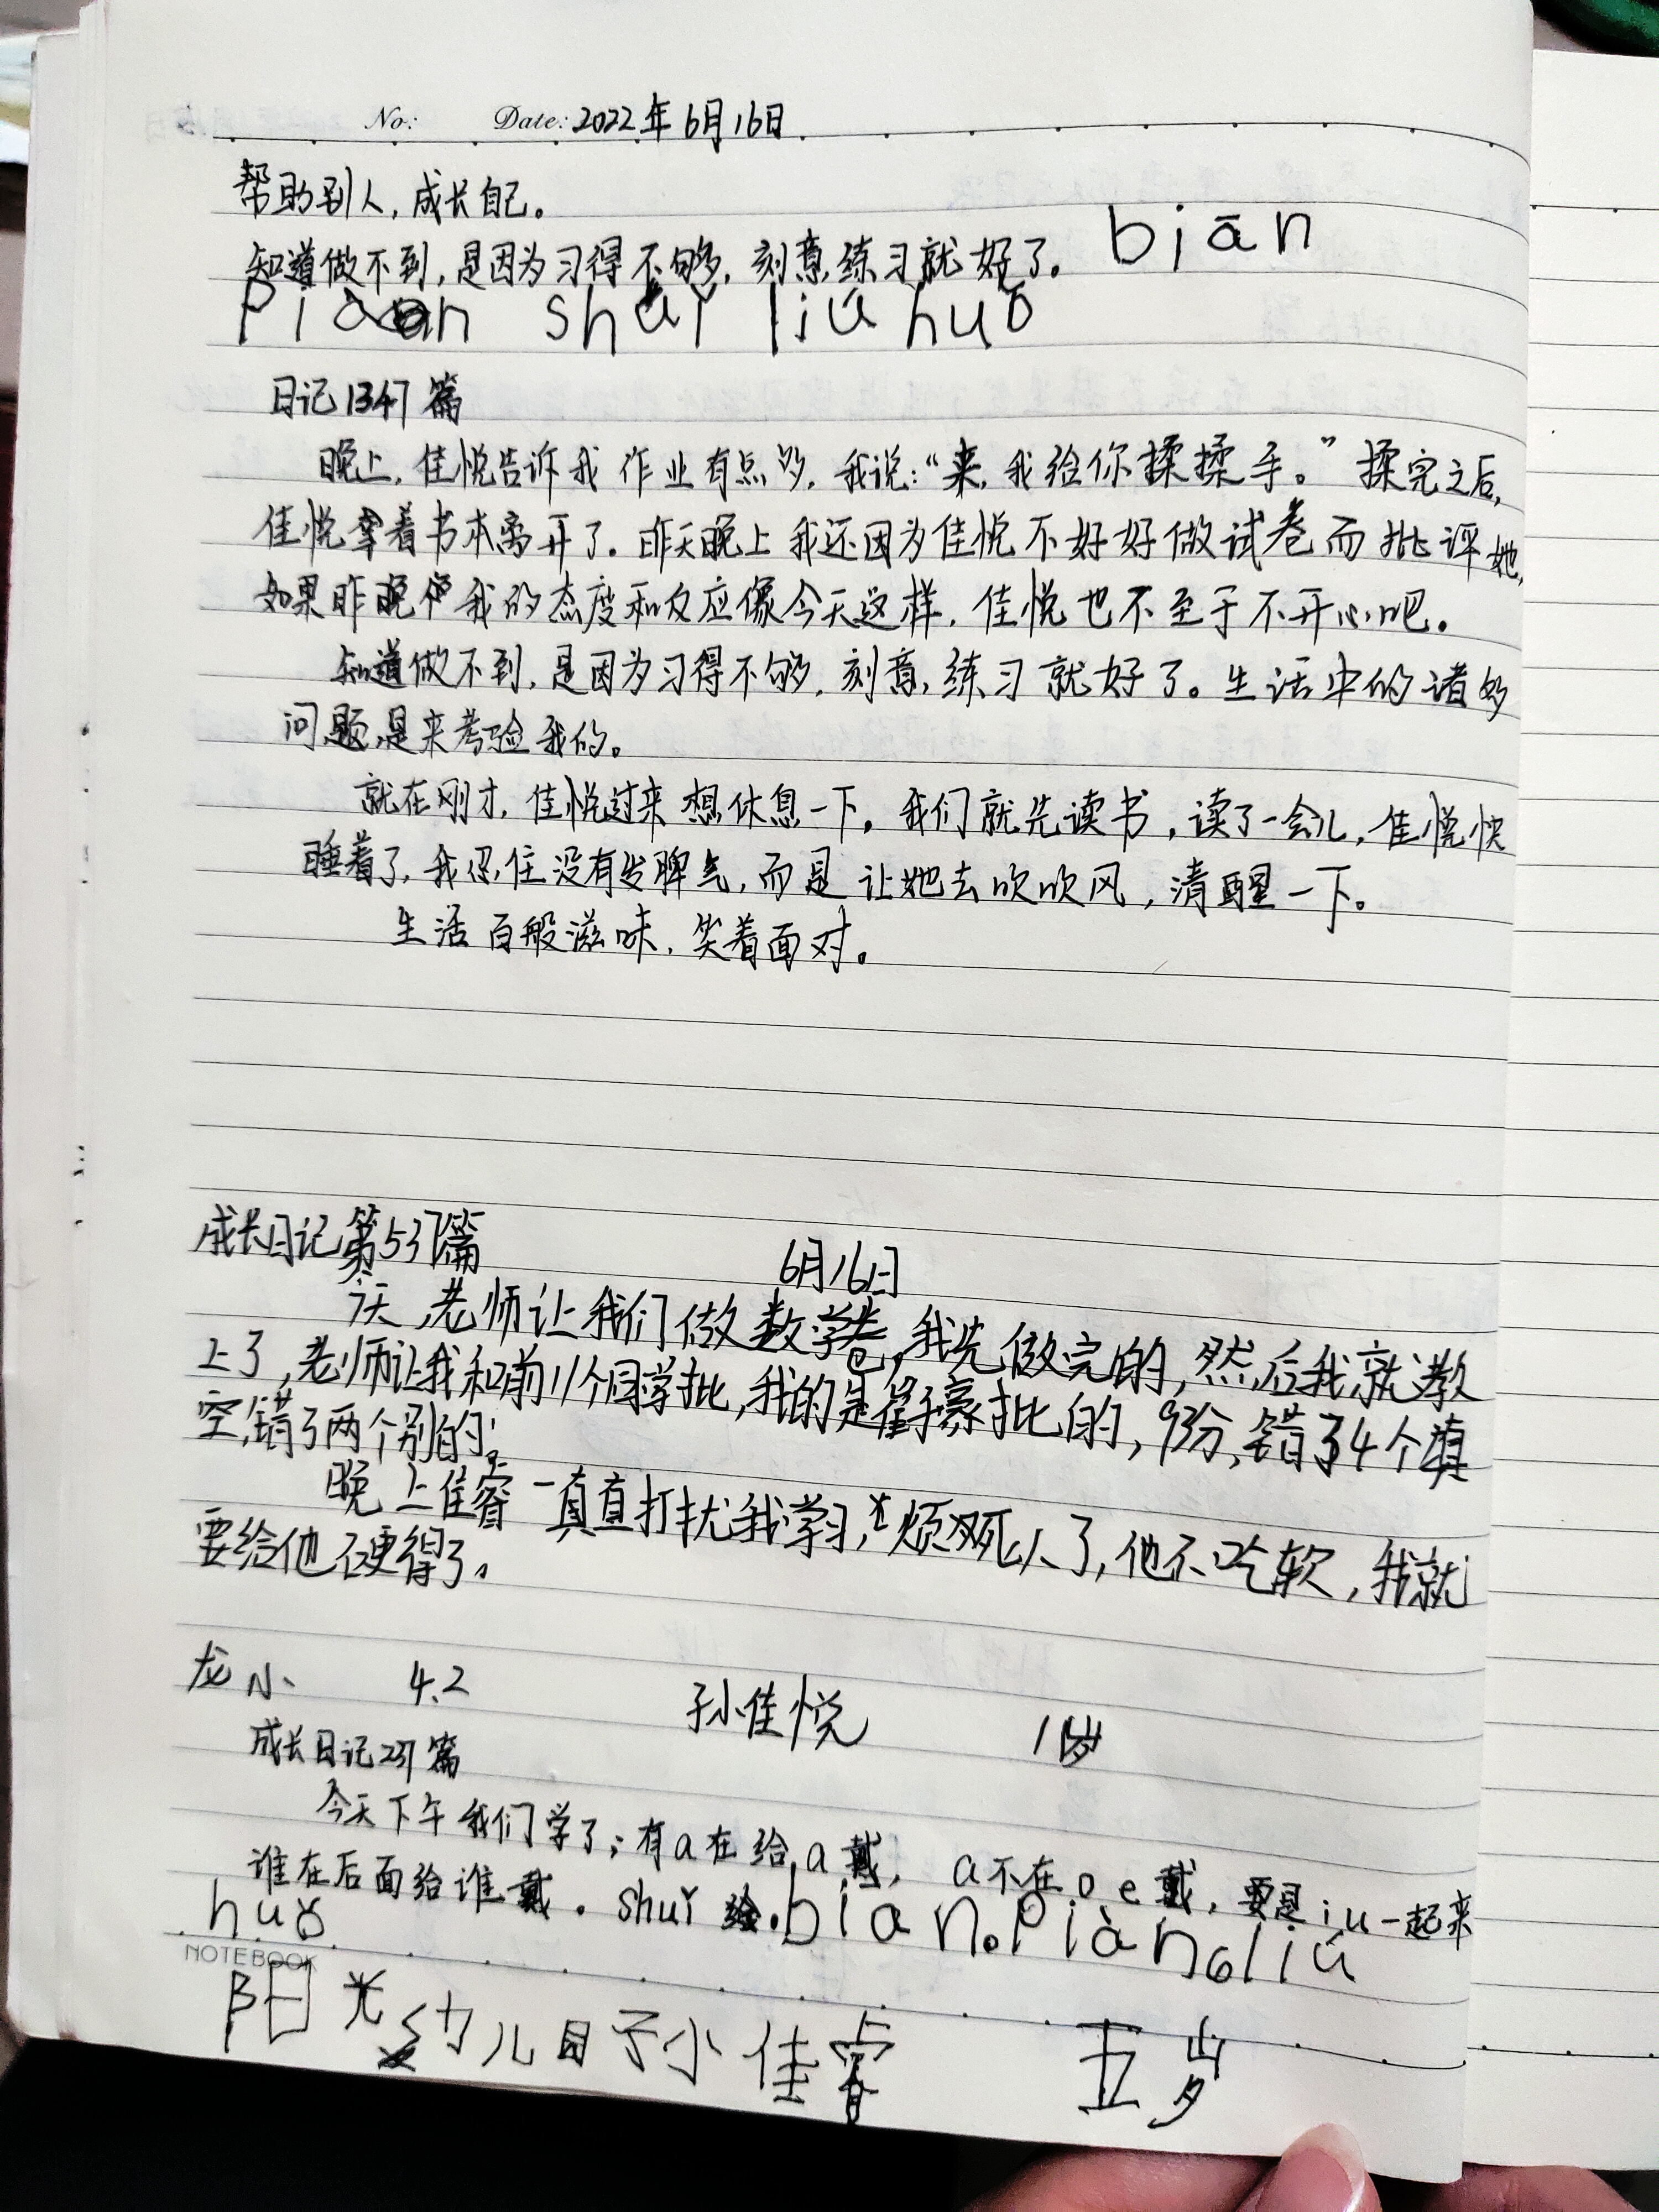 No: Date: 2022年6月16日
帮助别人，成长自己。
知道做不到，是因为习得不够，刻意练习就好了。 biān
piàn shuǐ liú huǒ
日记1347篇
晚上，佳悦告诉我作业有点多，我说：“来，我给你揉揉手。”揉完之后，
佳悦拿着书本离开了。昨天晚上我还因为佳悦不好好做试卷而批评她，
如果昨晚我的态度和反应像今天这样，佳悦也不至于不开心吧。
知道做不到，是因为习得不够，刻意练习就好了。生活中的诸多
问题是来考验我的。
就在刚才，佳悦过来想休息一下。我们就先读书，读了一会儿，佳悦快
睡着了，我忍住没有发脾气，而是让她去吹吹风，清醒一下。
生活百般滋味，笑着面对。
成长日记第537篇 6月16日
今天，老师让我们做数学卷，我先做完的，然后我就教
上了，老师让我和前11个同学批，我的是崔子豪批的，93分，错了4个填
空，错了两个别的。
晚上佳睿一直打扰我学习，烦死人了，他不吃软，我就
要给他硬得了。
龙小 4.2 孙佳悦 11岁
成长日记237篇
今天下午我们学了；有a在给a戴， a不在o e戴，要是iu一起来
谁在后面给谁戴。shuǐ biān。piàn。liú
huǒ
NOTEBOOK
阳光幼儿园孙佳睿 五岁